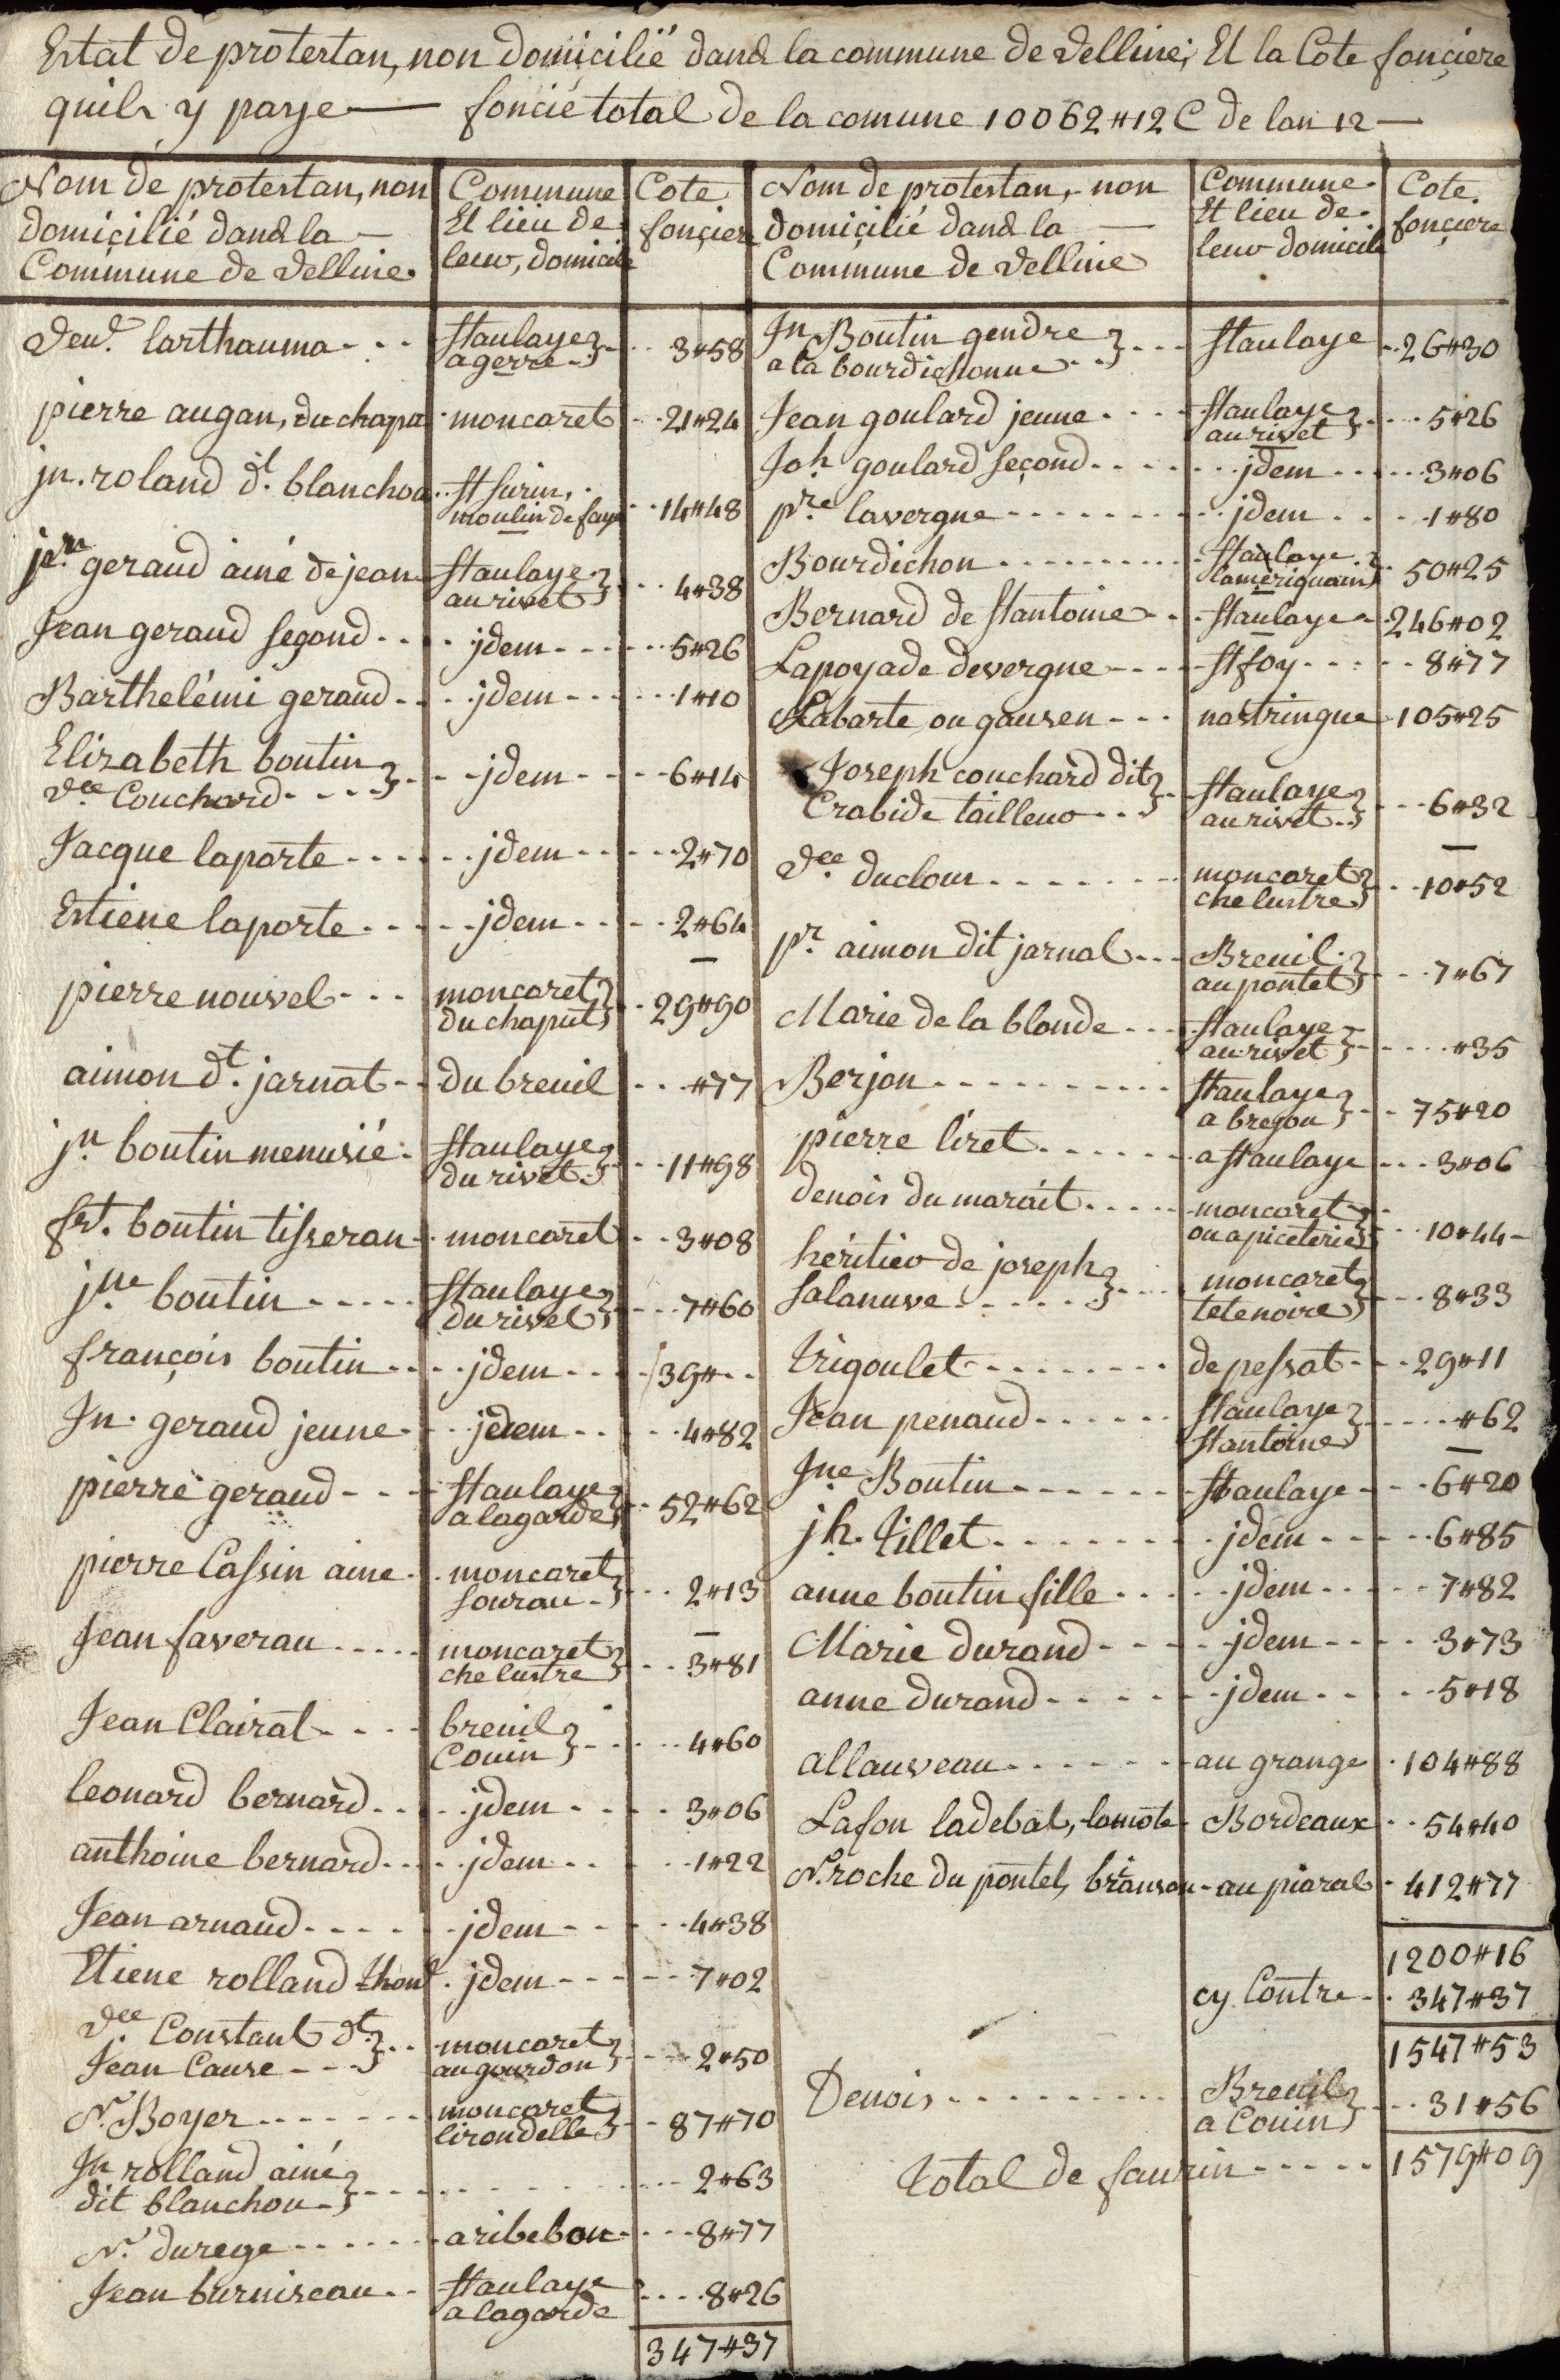 Estat de protestan, non domicilié dans la commune de velline, Et la Cote fonciere
quils y paye — foncié total de la comune 10062₶12 C de lan 12 —
Nom de protestan, non
domicilié dans la —
Commune de velline
Commune
Et lieu de
leur, domicile
Cote
fonciere
veu.e larthauma
staulaye
a gerre
3₶58
pierre augan, du chapu
moncaret
21₶24
jn. roland dt. blanchou
st surin,
moulin de faye
14₶48
jn geraud ainé de jean
staulaye
au rivet
4₶38
Jean geraud segond
jdem
5₶26
Barthelémi geraud
jdem
1₶10
Elizabeth boutin
vce Couchard
jdem
6₶14
Jacque laporte
jdem
2₶70
Estiene laporte
jdem
2₶64
pierre nouvel
moncaret
du chaput
29₶90
aimon dt. jarnat
du breuil
₶77
jn boutin menusié
staulaye
du rivet
11₶98
frt. boutin tisseran
moncaret
3₶08
jne boutin
staulaye
du rivet
7₶60
françois boutin
jdem
39₶
Jn. geraud jeune
jdem
4₶82
pierre geraud
staulaye
a lagarde
52₶62
pierre Cassin aine
moncaret
sourau
2₶13
Jean faverau
moncaret
che lustre
3₶81
Jean Clairat
breuil
Couin
4₶60
leonard bernard
jdem
3₶06
anthoine bernard
jdem
1₶22
Jean arnaud
jdem
4₶38
Etiene rolland
jdem
7₶02
vce Constant dt
Jean Cause
moncaret
au gourdon
2₶50
N. Boyer
moncaret
lirondelle
87₶70
Jn rolland ainé
dit blanchou
2₶63
N. durege
aribebon
8₶77
Jean burniseau
staulaye
a lagarde
8₶26
347₶37
Nom de protestan, non
domicilié dans la —
Commune de velline
Commune
Et lieu de
leur domicile
Cote
fonciere
Jn Boutin gendre
a la bourdichonne
staulaye
26₶30
Jean goulard jeune
staulaye
au rivet
5₶26
Joh goulard segond
jdem
3₶06
pre lavergne
jdem
1₶80
Bourdichon
staulaye
lameriquain
50₶25
Bernard de stantoine
staulaye
246₶02
Lapoyade devergne
st foy
8₶77
Labarte ou gausen
nastringue
105₶25
Joseph couchard dit
Crabide tailleur
staulaye
au rivet
6₶32
vce duclour
moncaret
che lustre
10₶52
pr aimon dit jarnal
Breuil
au pontet
7₶67
Marie de la blonde
staulaye
au rivet
₶35
Berjon
staulaye
a bregou
75₶20
pierre liret
a staulaye
3₶06
denois du marait
moncaret
ou apiceterie
10₶44
héritier de joseph
salanuve
moncaret
tetenoire
8₶33
trigoulet
de pessat
29₶11
Jean penaud
staulaye
stantoine
₶62
Jne Boutin
staulaye
6₶20
jh. tillet
jdem
6₶85
anne boutin fille
jdem
7₶82
Marie durand
jdem
3₶73
anne durand
jdem
5₶18
allauveau
au grange
104₶88
Lafon ladebat, lamote
Bordeaux
54₶40
N. roche du pontet, briansou
au piaral
412₶77
1200₶16
cy Contre
347₶37
1547₶53
Denois
Breuil
a Couin
31₶56
total de faurin
1579₶09